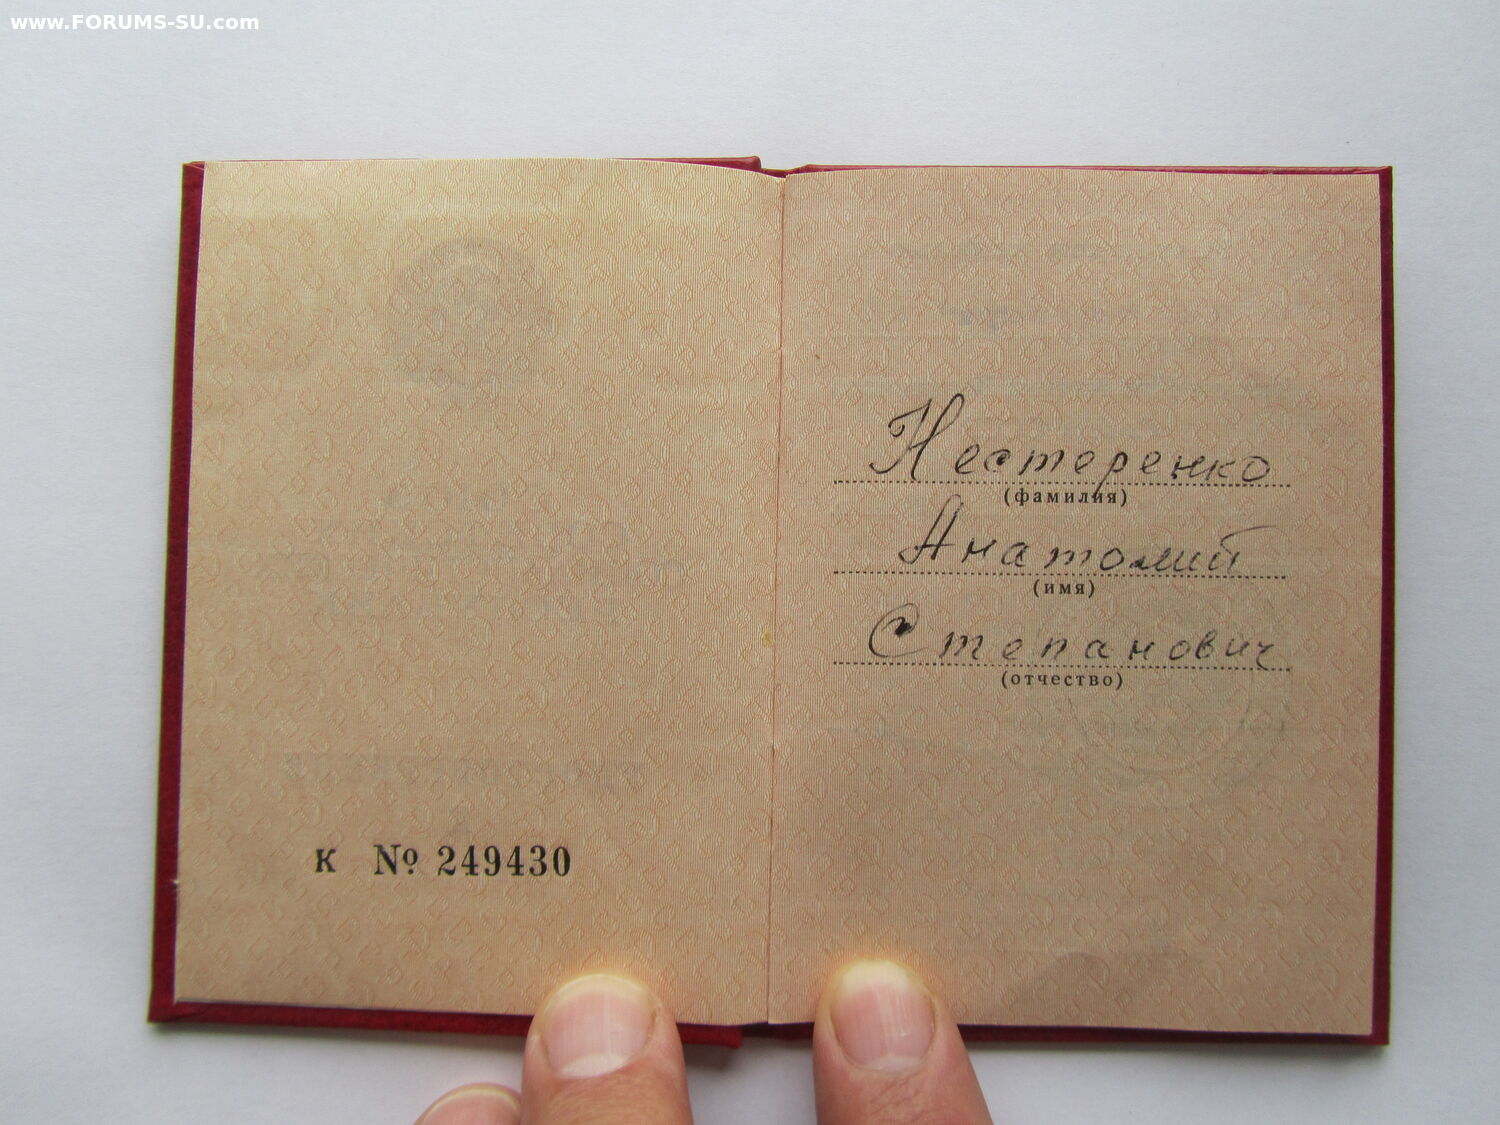 www.FORUMS-SU.com
Нестеренко
(фамилия)
Анатолий
(имя)
Степанович
(отчество)
К № 249430